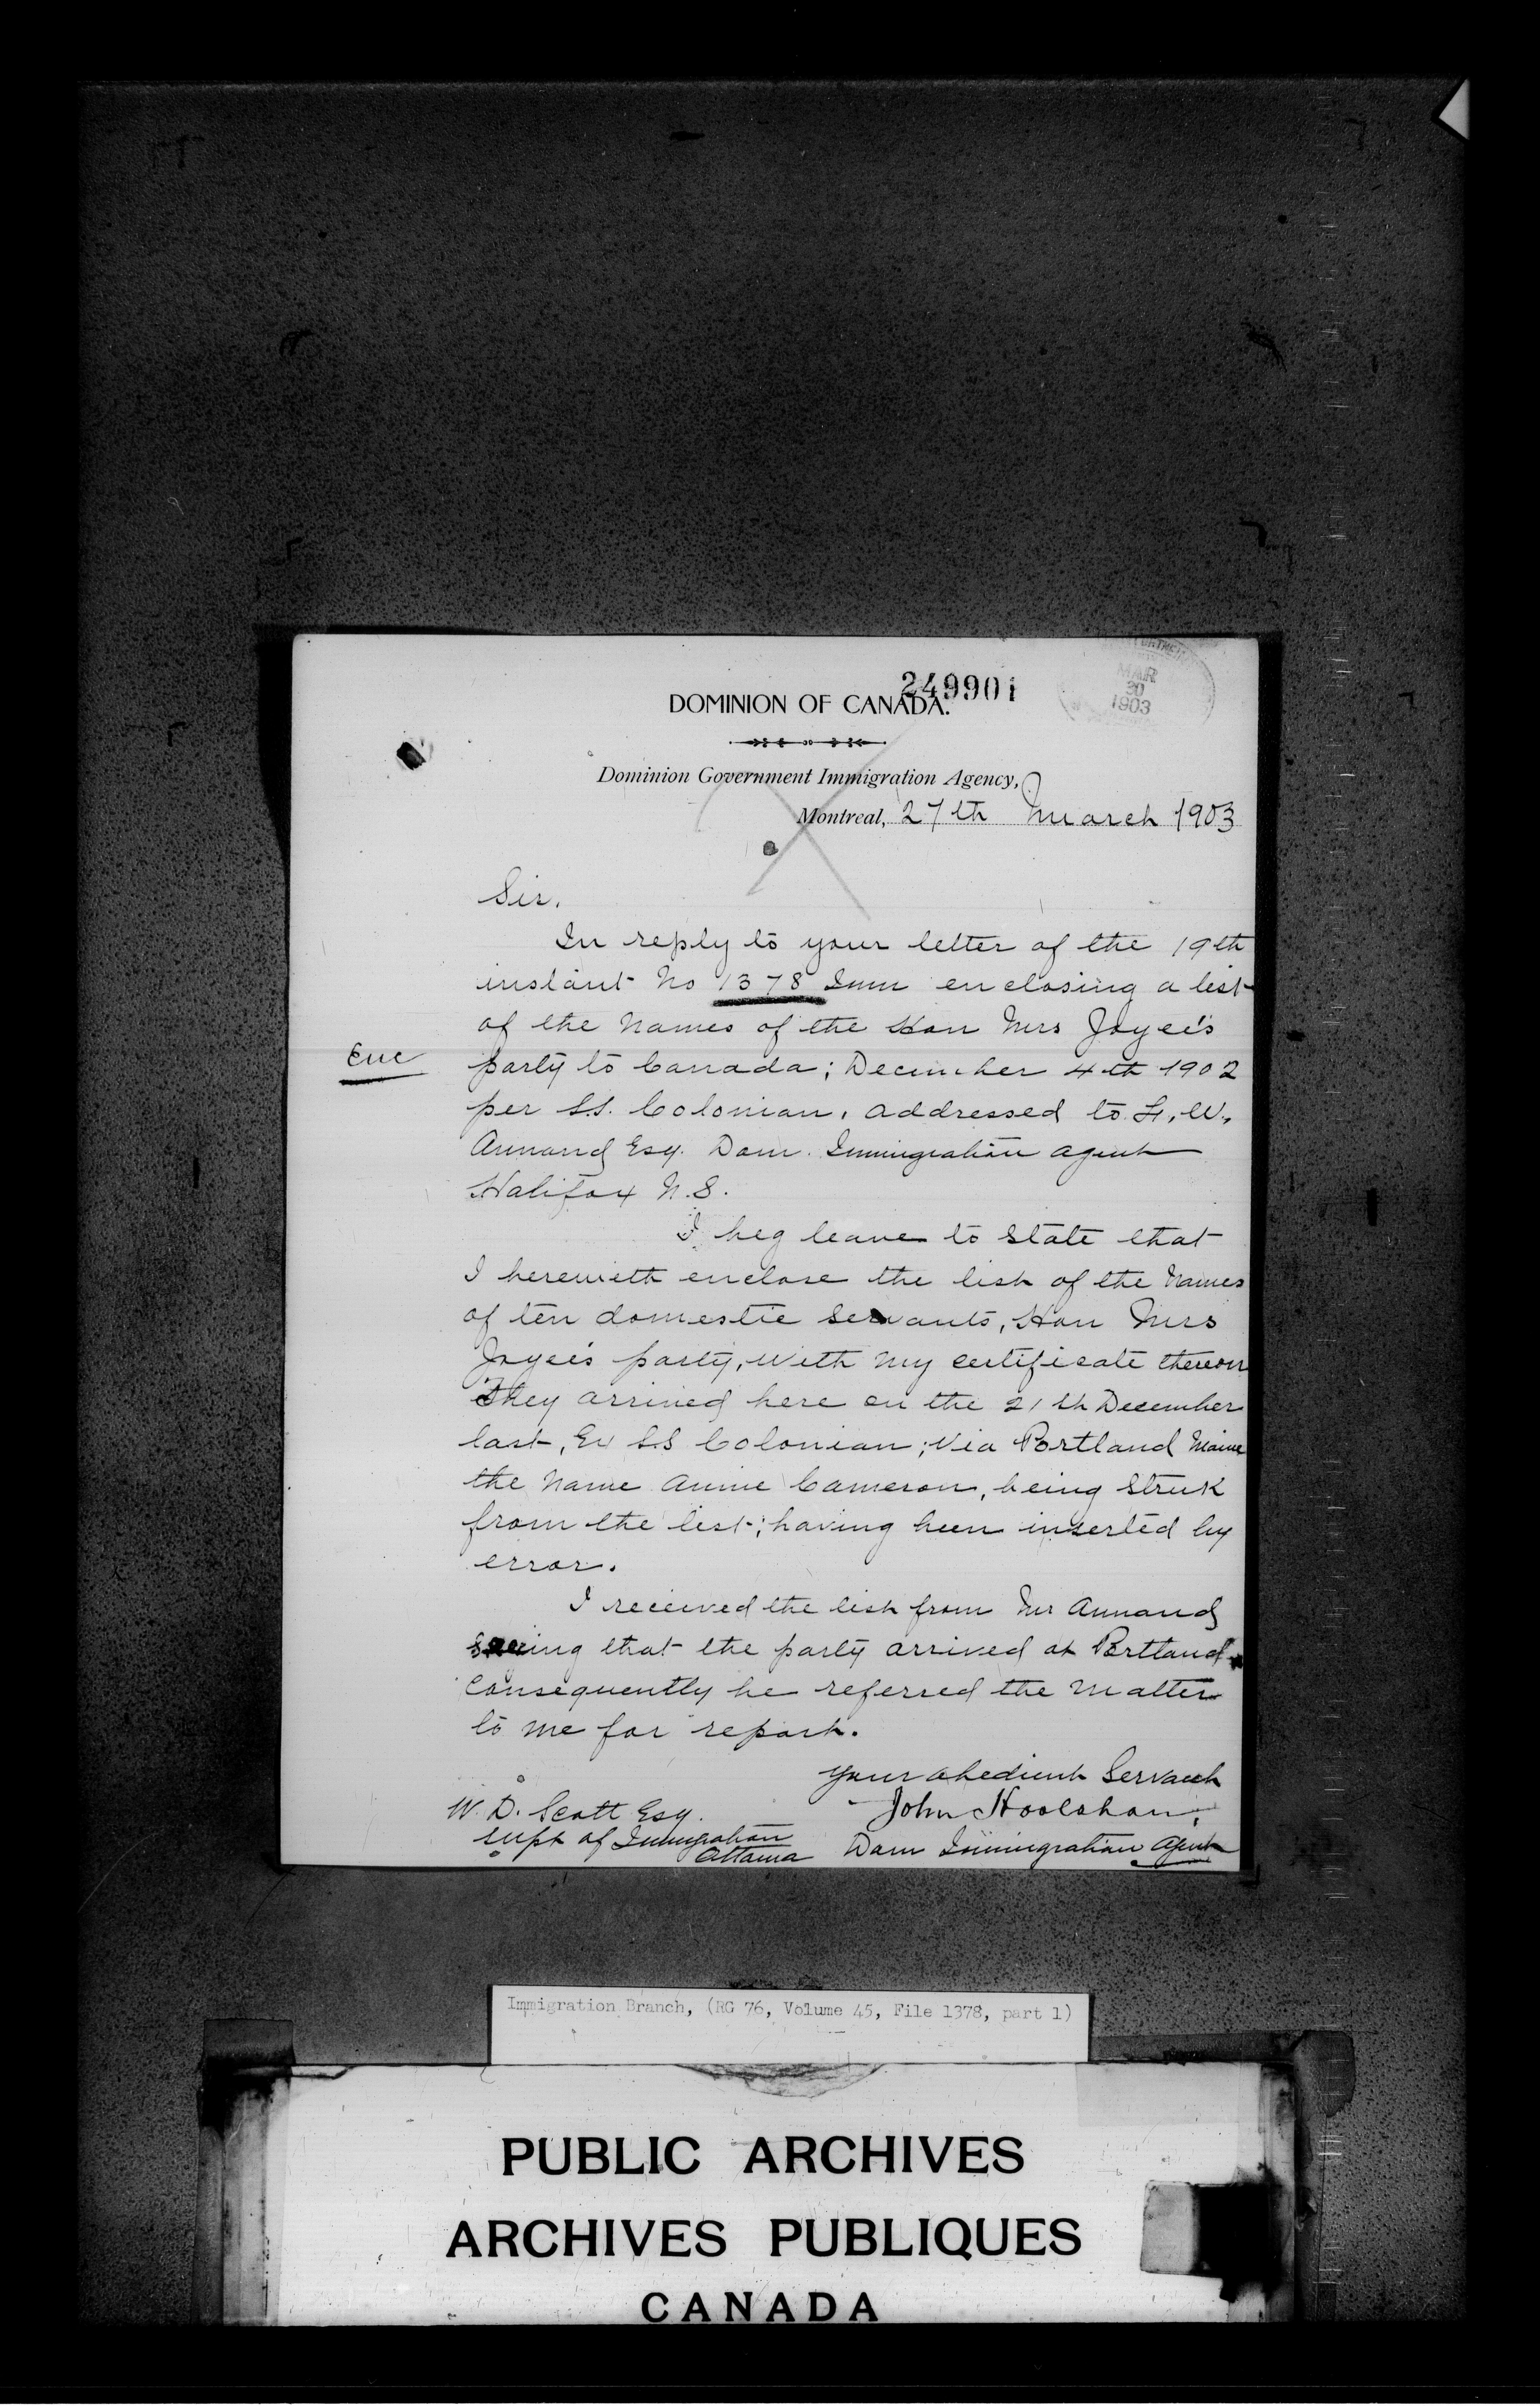 249901
MAR
30
1903
DOMINION OF CANADA.
Dominion Government Immigration Agency,
Montreal, 27th March 1903
Sir,
In reply to your letter of the 19th
instant No 1378 Imm enclosing a list
of the Names of the Hon Mrs Joyce's
Enc
party to Canada; December 4th 1902
per S.S. Colonian, addressed to F. W.
Annand Esq. Dom. Immigration agent
Halifax N.S.
I beg leave to State that
I herewith enclose the list of the Names
of ten domestic servants, Hon Mrs
Joyce's party, with my certificate thereon
They arrived here on the 21th December
last, Ex S.S Colonian; Via Portland Maine
the Name Annie Cameron, being Struk
from the list; having been inserted by
error.
I received the list from Mr Annand
seeing that the party arrived at Portland
Consequently he referred the Matter
to me for report.
Your obedient Servant
John Hoolahan,
Dom Immigration Agent
W. D. Scott Esq.
Supt of Immigration
Ottawa
Immigration Branch, (RG 76, Volume 45, File 1378, part 1)
PUBLIC ARCHIVES
ARCHIVES PUBLIQUES
CANADA